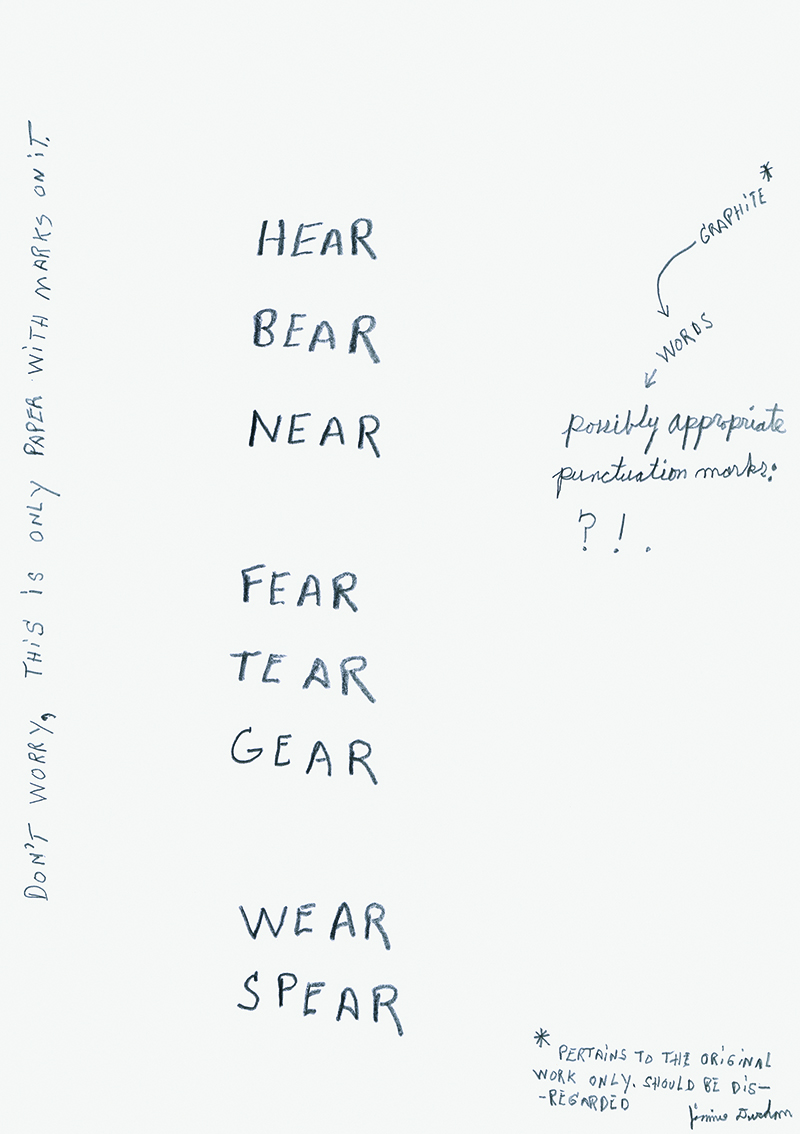 DON'T WORRY, THIS IS ONLY PAPER WITH MARKS ON IT.
HEAR
BEAR
NEAR
FEAR
TEAR
GEAR
WEAR
SPEAR
GRAPHITE*
WORDS
possibly appropriate
punctuation marks:
? ! .
* PERTAINS TO THE ORIGINAL
WORK ONLY. SHOULD BE DIS-
-REGARDED
Jimmie Durham